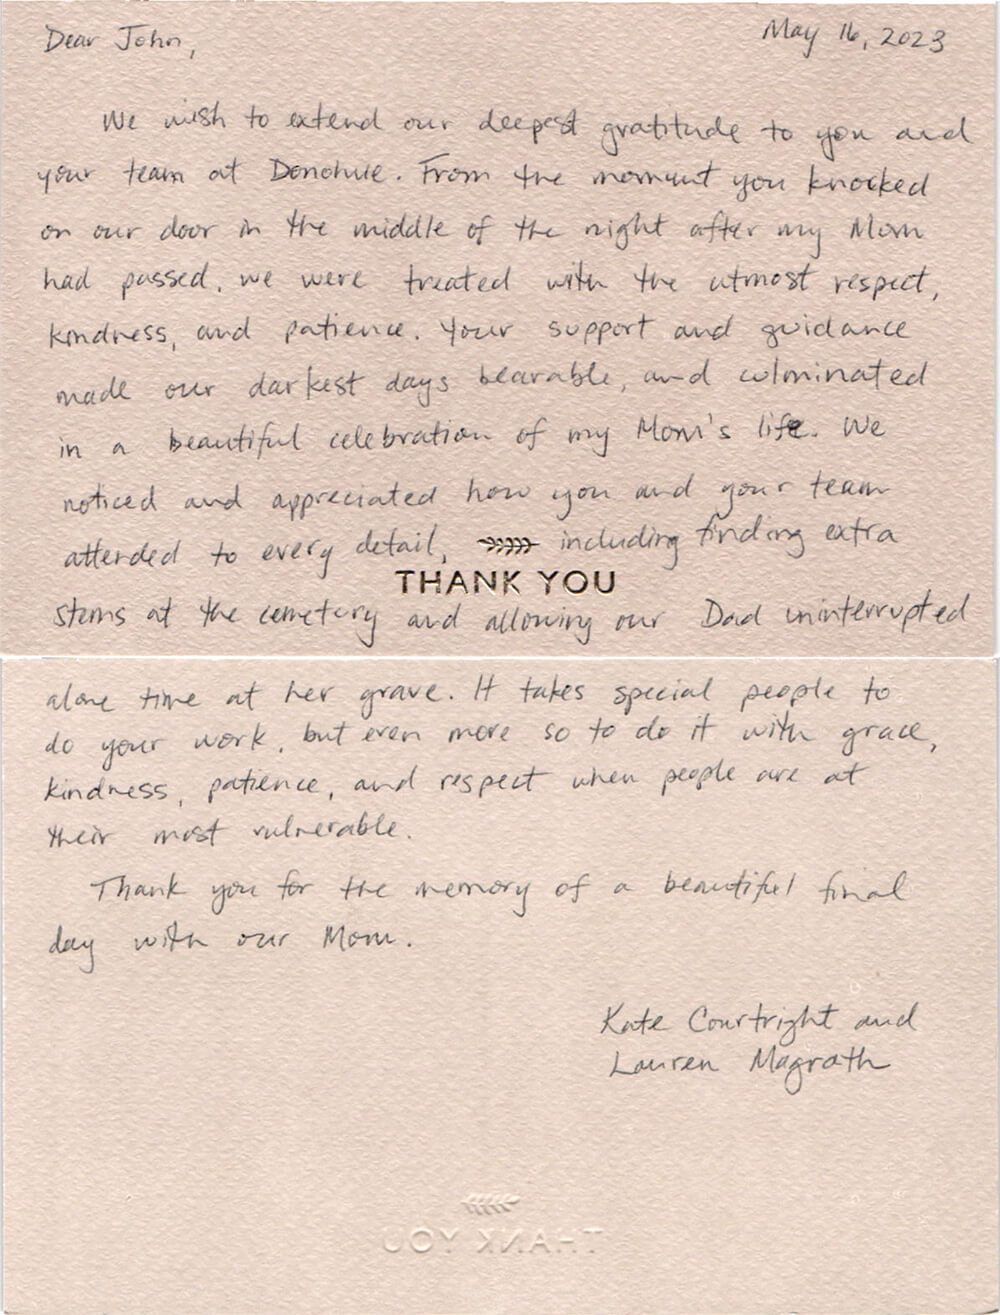 May 16, 2023
Dear John,
We wish to extend our deepest gratitude to you and
your team at Donohue. From the moment you knocked
on our door in the middle of the night after my Mom
had passed, we were treated with the utmost respect,
kindness, and patience. Your support and guidance
made our darkest days bearable, and culminated
in a beautiful celebration of my Mom's life. We
noticed and appreciated how you and your team
attended to every detail, including finding extra
THANK YOU
stems at the cemetery and allowing our Dad uninterrupted
alone time at her grave. It takes special people to
do your work, but even more so to do it with grace,
kindness, patience, and respect when people are at
their most vulnerable.
Thank you for the memory of a beautiful final
day with our Mom.
Kate Courtright and
Lauren Magrath
THANK YOU